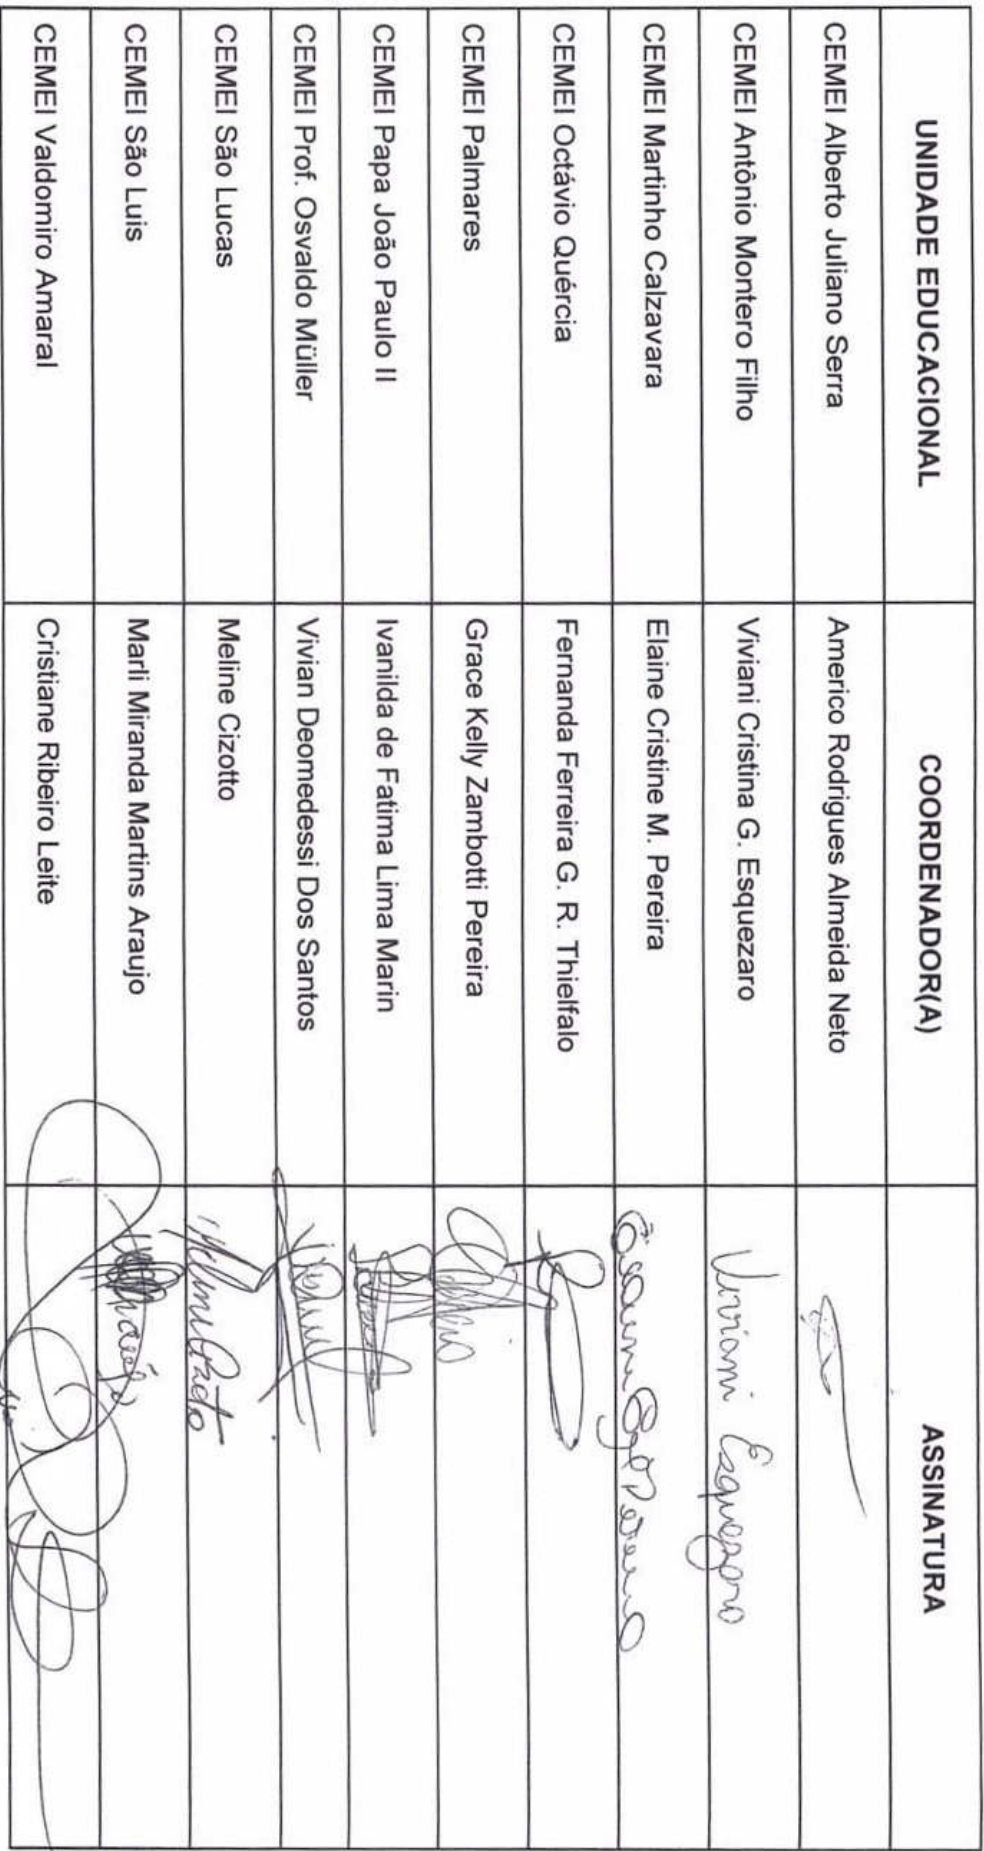 UNIDADE EDUCACIONAL COORDENADOR(A) ASSINATURA
CEMEI Alberto Juliano Serra Americo Rodrigues Almeida Neto
CEMEI Antônio Montero Filho Viviani Cristina G. Esquezaro Viviani Esquezaro
CEMEI Martinho Calzavara Elaine Cristine M. Pereira
CEMEI Octávio Quércia Fernanda Ferreira G. R. Thielfalo
CEMEI Palmares Grace Kelly Zambotti Pereira
CEMEI Papa João Paulo II Ivanilda de Fatima Lima Marin
CEMEI Prof. Osvaldo Müller Vivian Deomedessi Dos Santos
CEMEI São Lucas Meline Cizotto
CEMEI São Luis Marli Miranda Martins Araujo
CEMEI Valdomiro Amaral Cristiane Ribeiro Leite